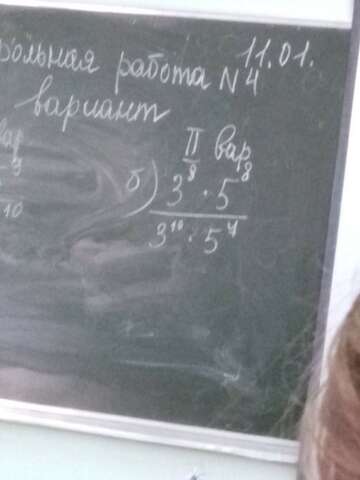 рольная работа N4 11.01.
вариант
вар II вар
9 б) 3⁸ · 5⁸
10 3¹⁰ · 5⁷